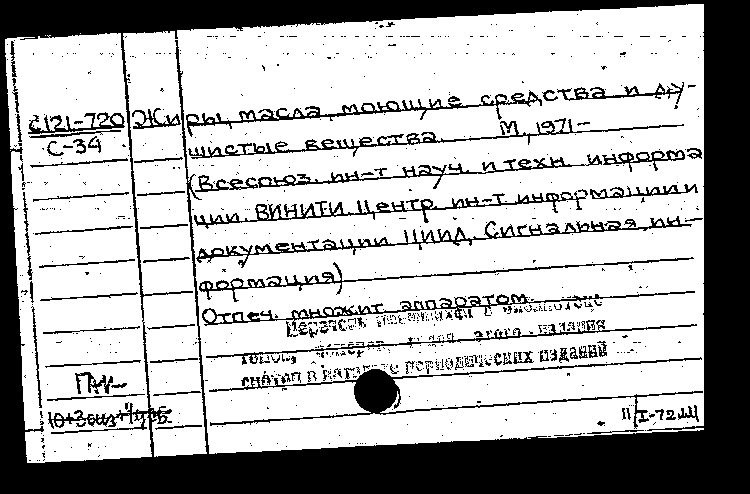 С121-720 Жиры, масла, моющие средства и ду-
С-34 шистые вещества. М., 1971-
(Всесоюз. ин-т науч. и техн. информа
ции. ВИНИТИ. Центр. ин-т информации и
документации ЦИИД. Сигнальная ин-
формация)
Отпеч. множит. аппаратом.
Перечень имеющихся в библиотеке
томов, номеров, этого издания
смотри в каталоге периодических изданий
II/I-72